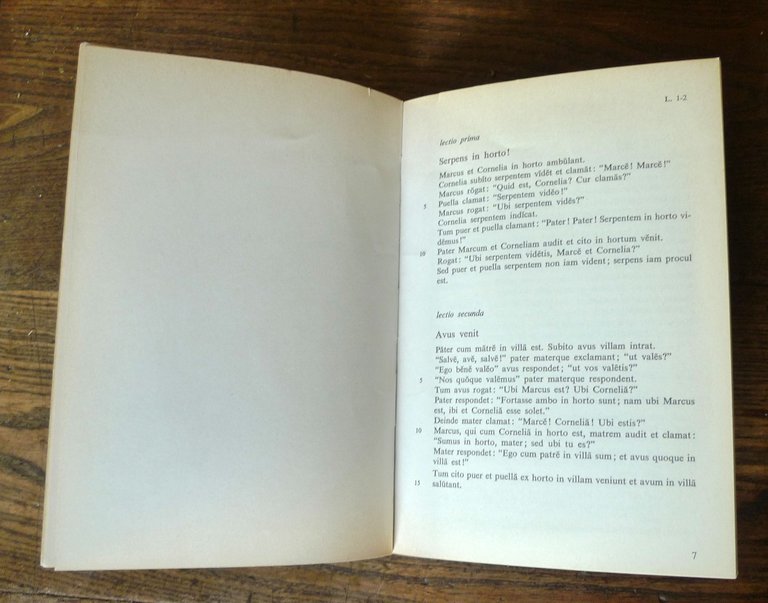 L. 1-2
lectio prima
Serpens in horto!
Marcus et Cornelia in horto ambŭlant.
Cornelia subĭto serpentem vĭdĕt et clamăt: “Marcĕ! Marcĕ!”
Marcus rŏgat: “Quid est, Cornelia? Cur clamās?”
Puella clamat: “Serpentem vĭdĕo!”
5 Marcus rogat: “Ubi serpentem vidēs?”
Cornelia serpentem indĭcat.
Tum puer et puella clamant: “Pater! Pater! Serpentem in horto vi-
dēmus!”
10 Pater Marcum et Corneliam audit et cito in hortum vĕnit.
Rogat: “Ubi serpentem vidētis, Marcĕ et Cornelia?”
Sed puer et puella serpentem non iam vident; serpens iam procul
est.
lectio secunda
Avus venit
Păter cum mātrĕ in villā est. Subito avus villam intrat.
“Salvē, avĕ, salvē!” pater materque exclamant; “ut valēs?”
“Ego bĕnĕ valĕo” avus respondet; “ut vos valētis?”
5 “Nos quŏque valēmus” pater materque respondent.
Tum avus rogat: “Ubi Marcus est? Ubi Corneliă?”
Pater respondet: “Fortasse ambo in horto sunt; nam ubi Marcus
est, ibi et Corneliă esse solet.”
Deinde mater clamat: “Marcĕ! Corneliă! Ubi estis?”
10 Marcus, qui cum Corneliā in horto est, matrem audit et clamat:
“Sumus in horto, mater; sed ubi tu es?”
Mater respondet: “Ego cum patrĕ in villā sum; et avus quoque in
villā est!”
Tum cito puer et puellă ex horto in villam veniunt et avum in villā
15 salūtant.
7